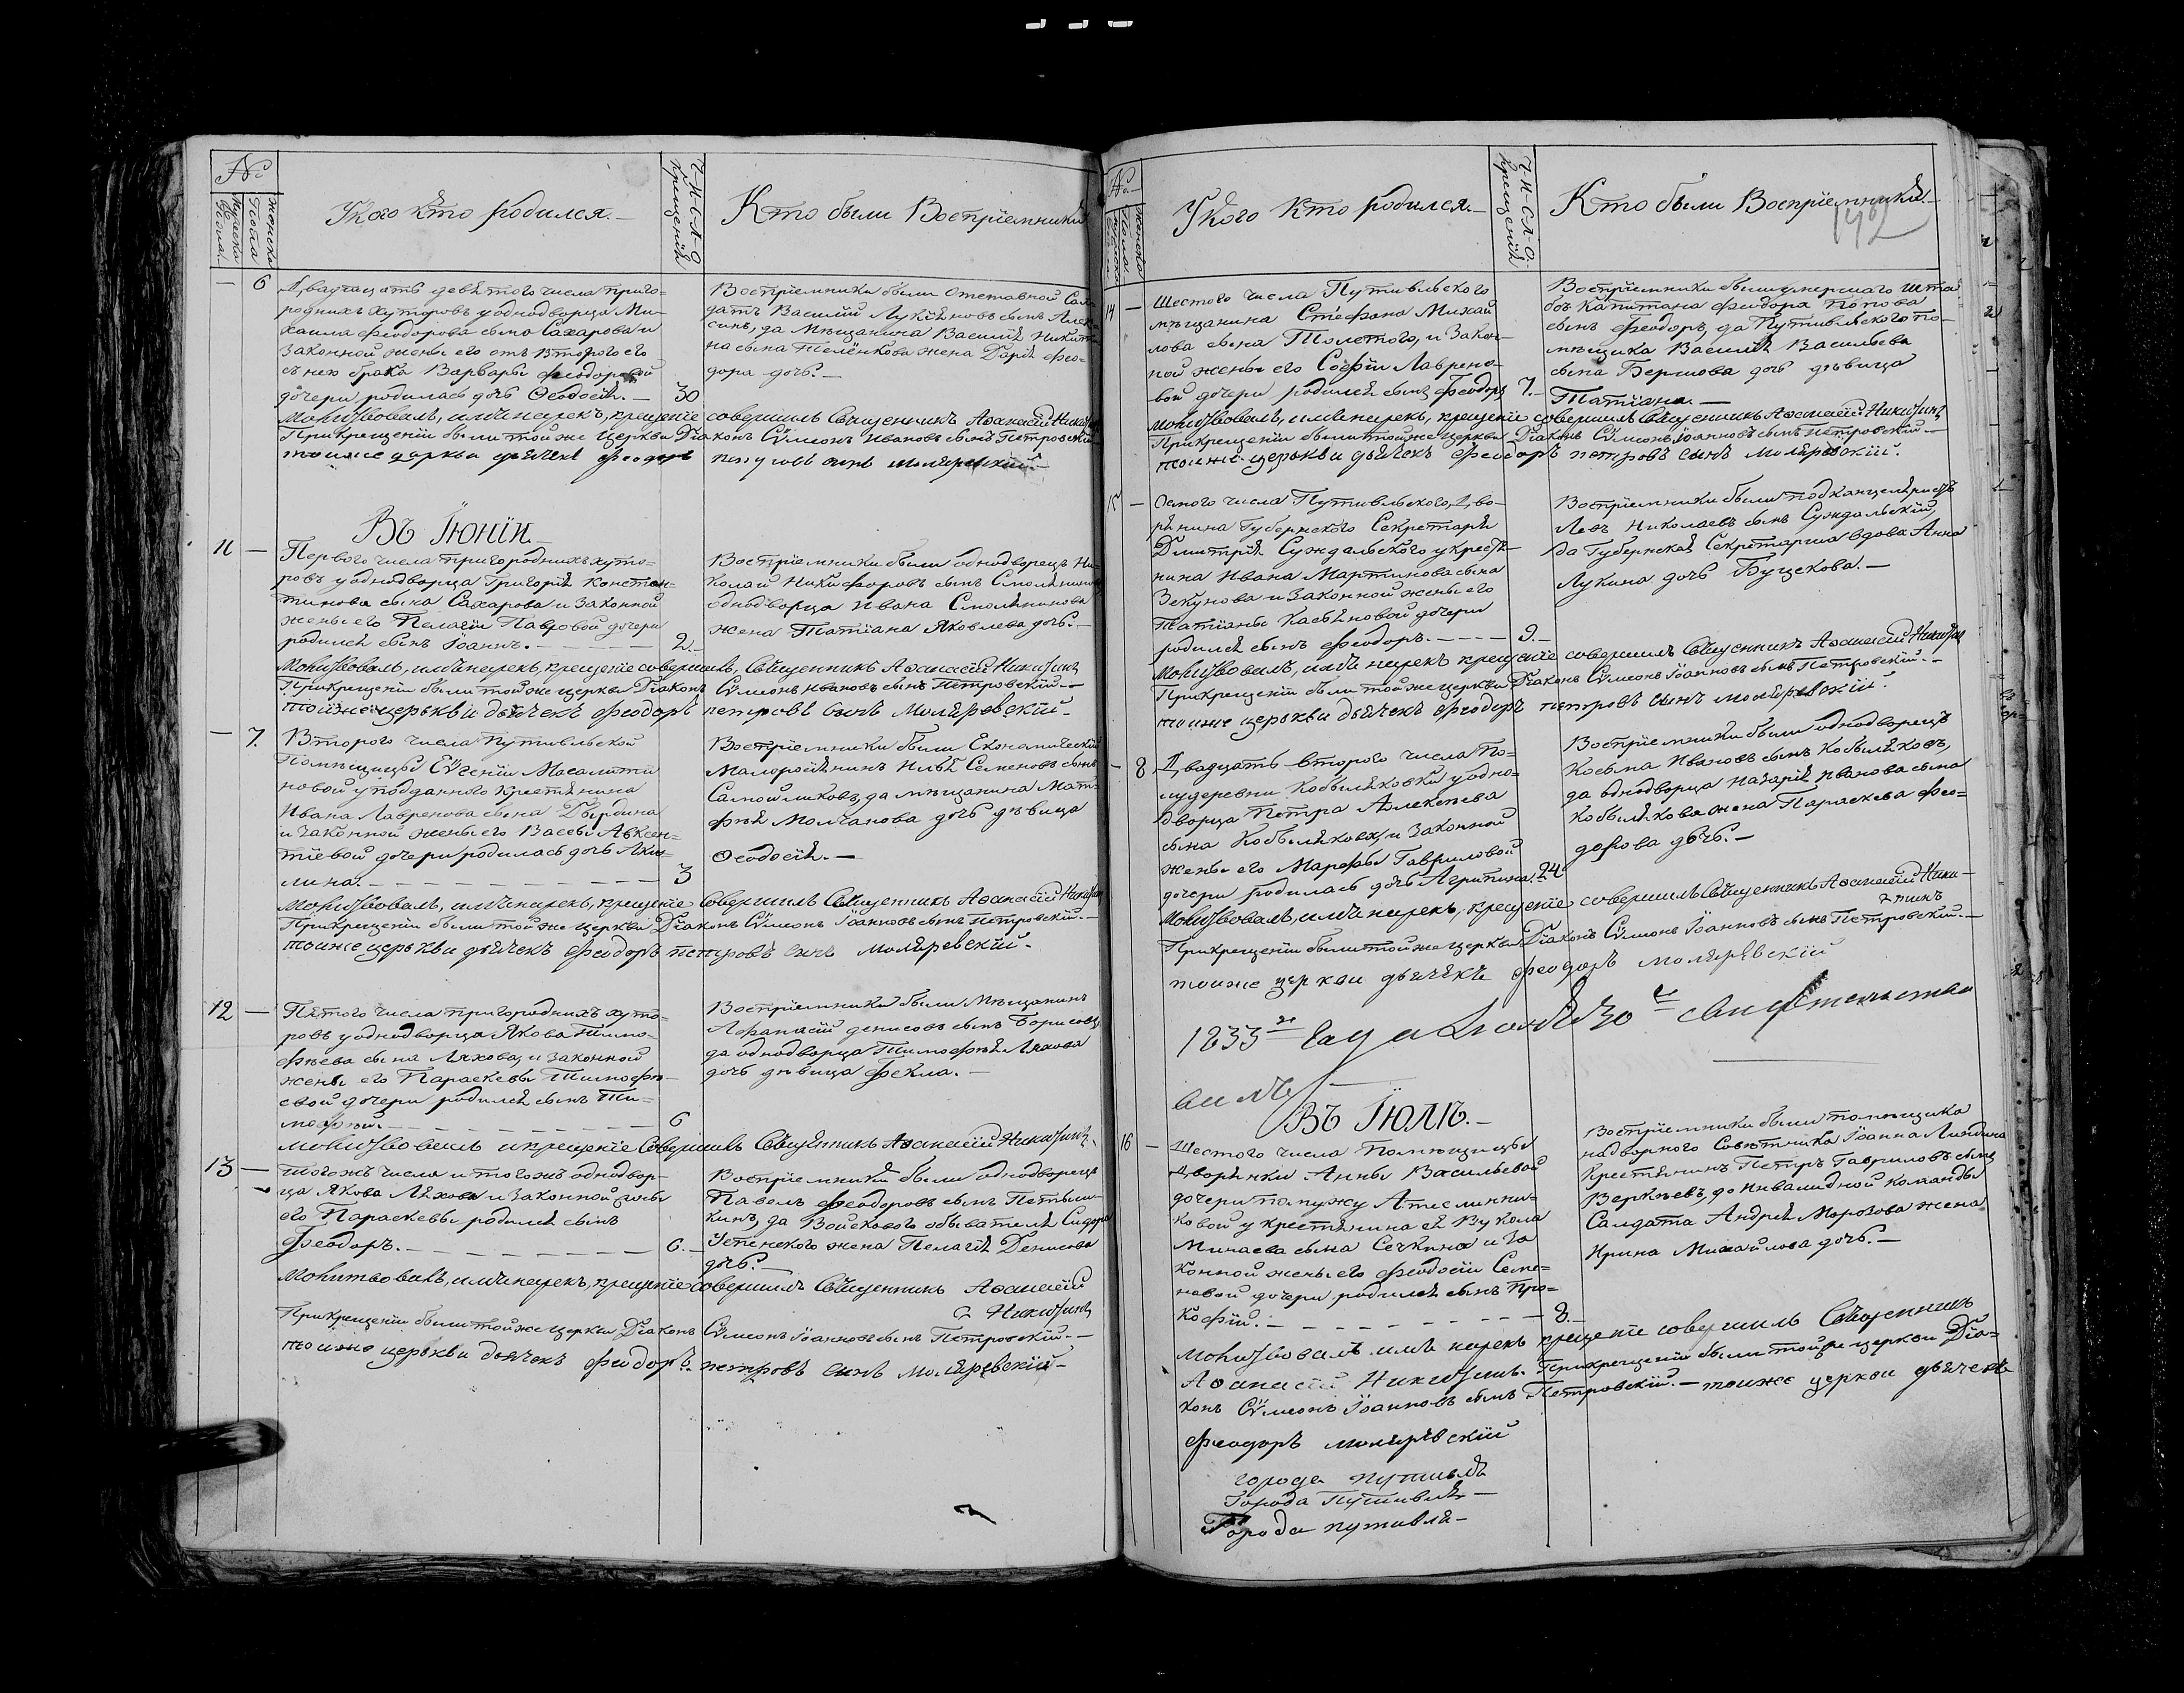 №
мужеска пола
женска пола
У кого кто родился.
Ч-И-С-Л-О крещенія
Кто были Воспріемники
6
Двадцать девятого числа приго=
родныхъ хуторовъ у однодворца Ми-
хаила Феодорова сына Сахарова и
законной жены его отъ Второго его
съ нею брака Варвары Феодоровой
дочери родилась дочь Феодосія. — 30
Воспріемники были отставной Сал
датъ Василій Лукіяновъ сынъ
синъ, да мѣщанина Василія Никити
на сына жена Дарія Фео=
дора дочь. —
Молитвовалъ, имя нарекъ, крещеніе совершилъ Священникъ Афанасій Никитинъ
При крещеніи были той же церкви Діаконъ Сѵмеонъ Ивановъ сынъ Петровскій
тоиже церкви дьячекъ Феодоръ петровъ сынъ моляревскій. —
Въ Іюнѣ. —
11 —
Перваго числа пригородныхъ хуто=
ровъ у однодворца Григорія Констан=
тинова сына Сахарова и законной
жены его Пелагіи Павровой дочери
родился сынъ Іоаннъ. — 2. —
Воспріемники были однодворецъ Ни-
колай Никифоровъ сынъ Смолянинов
однодворца Ивана Смолянинова
жена Татіана Яковлева дочь. —
Молитвовалъ, имя нарекъ, крещеніе совершилъ, Священникъ Афанасій Никитинъ
При крещеніи были той же церкви Діаконъ Сѵмеонъ Ивановъ сынъ Петровскій. —
тоиже церькви дьячекъ Феодоръ петровъ сынъ Моляревскій. —
— 7.
Втораго числа Путивльской
Помѣщицы Еѵгеніи Масалити
новой у подданного крестянина
Ивана Лавренова сына
и законной жены его Вассы Авксен=
тіевой дочери родилась дочь Аку=
лина. — — — — — — 3
Воспріемники были Економическій
Малоросіянинъ Илья Семеновъ сынъ
Самойликовъ, да мѣщанина Мат=
фѣя Молчанова дочь дѣвица
Феодосія. —
Молитвовалъ, имя нарекъ, крещеніе совершилъ Священникъ Афанасій Никитинъ
При крещеніи были той же церкви Діаконъ Сѵмеонъ Іоанновъ сынъ Петровскій. —
тоиже церькви дьячекъ Феодоръ петровъ сынъ моляревскій. —
12 —
Пятого числа пригородныхъ хуто=
ровъ у однодворца Якова Тимо=
фѣева сына Ляхова, и законной
жены его Параскевы Тимофѣ=
евой дочери родился сынъ Ти=
мофей. — — — — 6
Воспріемники были Мѣщанинъ
Афанасій денисовъ сынъ Борисовъ,
да однодворца Тимофѣя Ляхова
дочь дѣвица Фекла. —
молитвовалъ и крещеніе Совершилъ Священникъ Афанасій Никитинъ,
13 —
тогожъ числа и тогожъ однодвор=
ца Якова Ляхова и законной жены
его Параскевы родился сынъ
Феодоръ. — — — — — 6. —
Воспріемники были однодворецъ
Павелъ Феодоровъ сынъ
кинъ, да Войскового обывателя Сидора
Успенского жена Пелагія Денисова
дочь. —
Молитвовалъ, имя нарекъ, крещеніе совершилъ Священникъ Афанасій
Никитинъ
При крещеніи были той же церкви Діаконъ Сѵмеонъ Іоанновъ сынъ Петровскій. —
тоиже церькви дьячекъ Феодоръ петровъ сынъ моляревскій —
№
мужеска
женска пола
У кого кто родился. —
Ч-И-С-Л-О. крещенія
Кто были Воспріемники. —
142
14 —
Шестого числа Путивльского
мѣщанина Стефана Михай
лова сына Толстого, и закон=
ной жены его Софіи Лаврено=
вой дочери родился сынъ Феодоръ 7. —
Воспріемники были умершаго шта
бсъ Капитана Феодора Попова
сынъ Феодоръ, да Путивльского по=
мѣщика Василія Васильева
сына Берлова дочь дѣвица
Татіана. —
молитвовалъ, имя нарекъ, крещеніе совершилъ Священникъ Афанасій Никитинъ
При крещеніи были той же церкви Діаконъ Сѵмеонъ Іоанновъ сынъ Петровскій. —
тоиже церькви дьячекъ Феодоръ петровъ сынъ моляревскій.
15 —
Осмого числа Путивльского Дво=
рянина Губернского Секретаря
Дмитрія Суждальского у крестя=
нина Ивана Мартинова сына
Зекунова и законной жены его
Татіаны Касьяновой дочери
родился сынъ Феодоръ. — — — 9. —
Воспріемники были подканцеляристъ
Левъ Николаевъ сынъ Суждальскій,
да Губернская Секретарша вдова Анна
Лукина дочь Бушекова. —
Молитвовалъ, имя нарекъ крещеніе совершилъ Священникъ Афанасій Никитин
При крещеніи были той же церкви Діаконъ Сѵмеонъ Іоанновъ сынъ Петровскій. —
тоиже церькви дьячекъ Феодоръ петровъ сынъ моляревскій.
— 8
Двадцать втораго числа По=
лудеревни Кобыляковки у одно=
дворца Петра Алексѣева
сына Кобылякова, и законной
жены его Марфы Гавриловой
дочери родилась дочь Агрипина. 24
Воспріемники были однодворецъ
Косьма Ивановъ сынъ Кобыляковъ,
да однодворца Назарія Иванова сына
Кобылякова жена Параскева Фео=
дорова дочь. —
Молитвовалъ, имя нарекъ, крещеніе совершилъ Священникъ Афанасій Ники—
тинъ
При крещеніи были той же церкви Діаконъ Сѵмеонъ Іоанновъ сынъ Петровскій. —
тоиже церкви дьячекъ Феодоръ моляревскій
1833го года 30е свидетельство
Въ Іюлѣ. —
16 —
Шестого числа Помѣщицы
Дворянки Анны Васильевой
дочери по мужу
ковой у крестянина ея Вукола
Минаева сына Сечкина и за
конной жены его Феодосіи Семе=
новой дочери родился сынъ Про=
кофій. — — — — — — — 8. —
Воспріемники были помѣщика
надворного Совѣтника Іоанна
крестянинъ Петръ Гавриловъ сынъ
Веркѣевъ, да Инвалидной команды
Салдата Андрея Морозова жена
Ирина Михайлова дочь. —
Молитвовалъ имя нарекъ крещеніе совершилъ Священникъ
Афанасій Никитинъ. При крещеніи были той же церкви Діа=
конъ Сѵмеонъ Іоанновъ сынъ Петровскій. — тоиже церкви дьячекъ
Феодоръ моляревскій
города путивля
Города Путивля —
Города путивля —